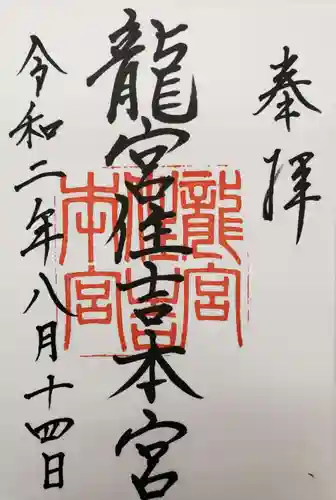 奉拝
龍宮住吉本宮
龍宮
住吉
本宮
令和二年八月十四日